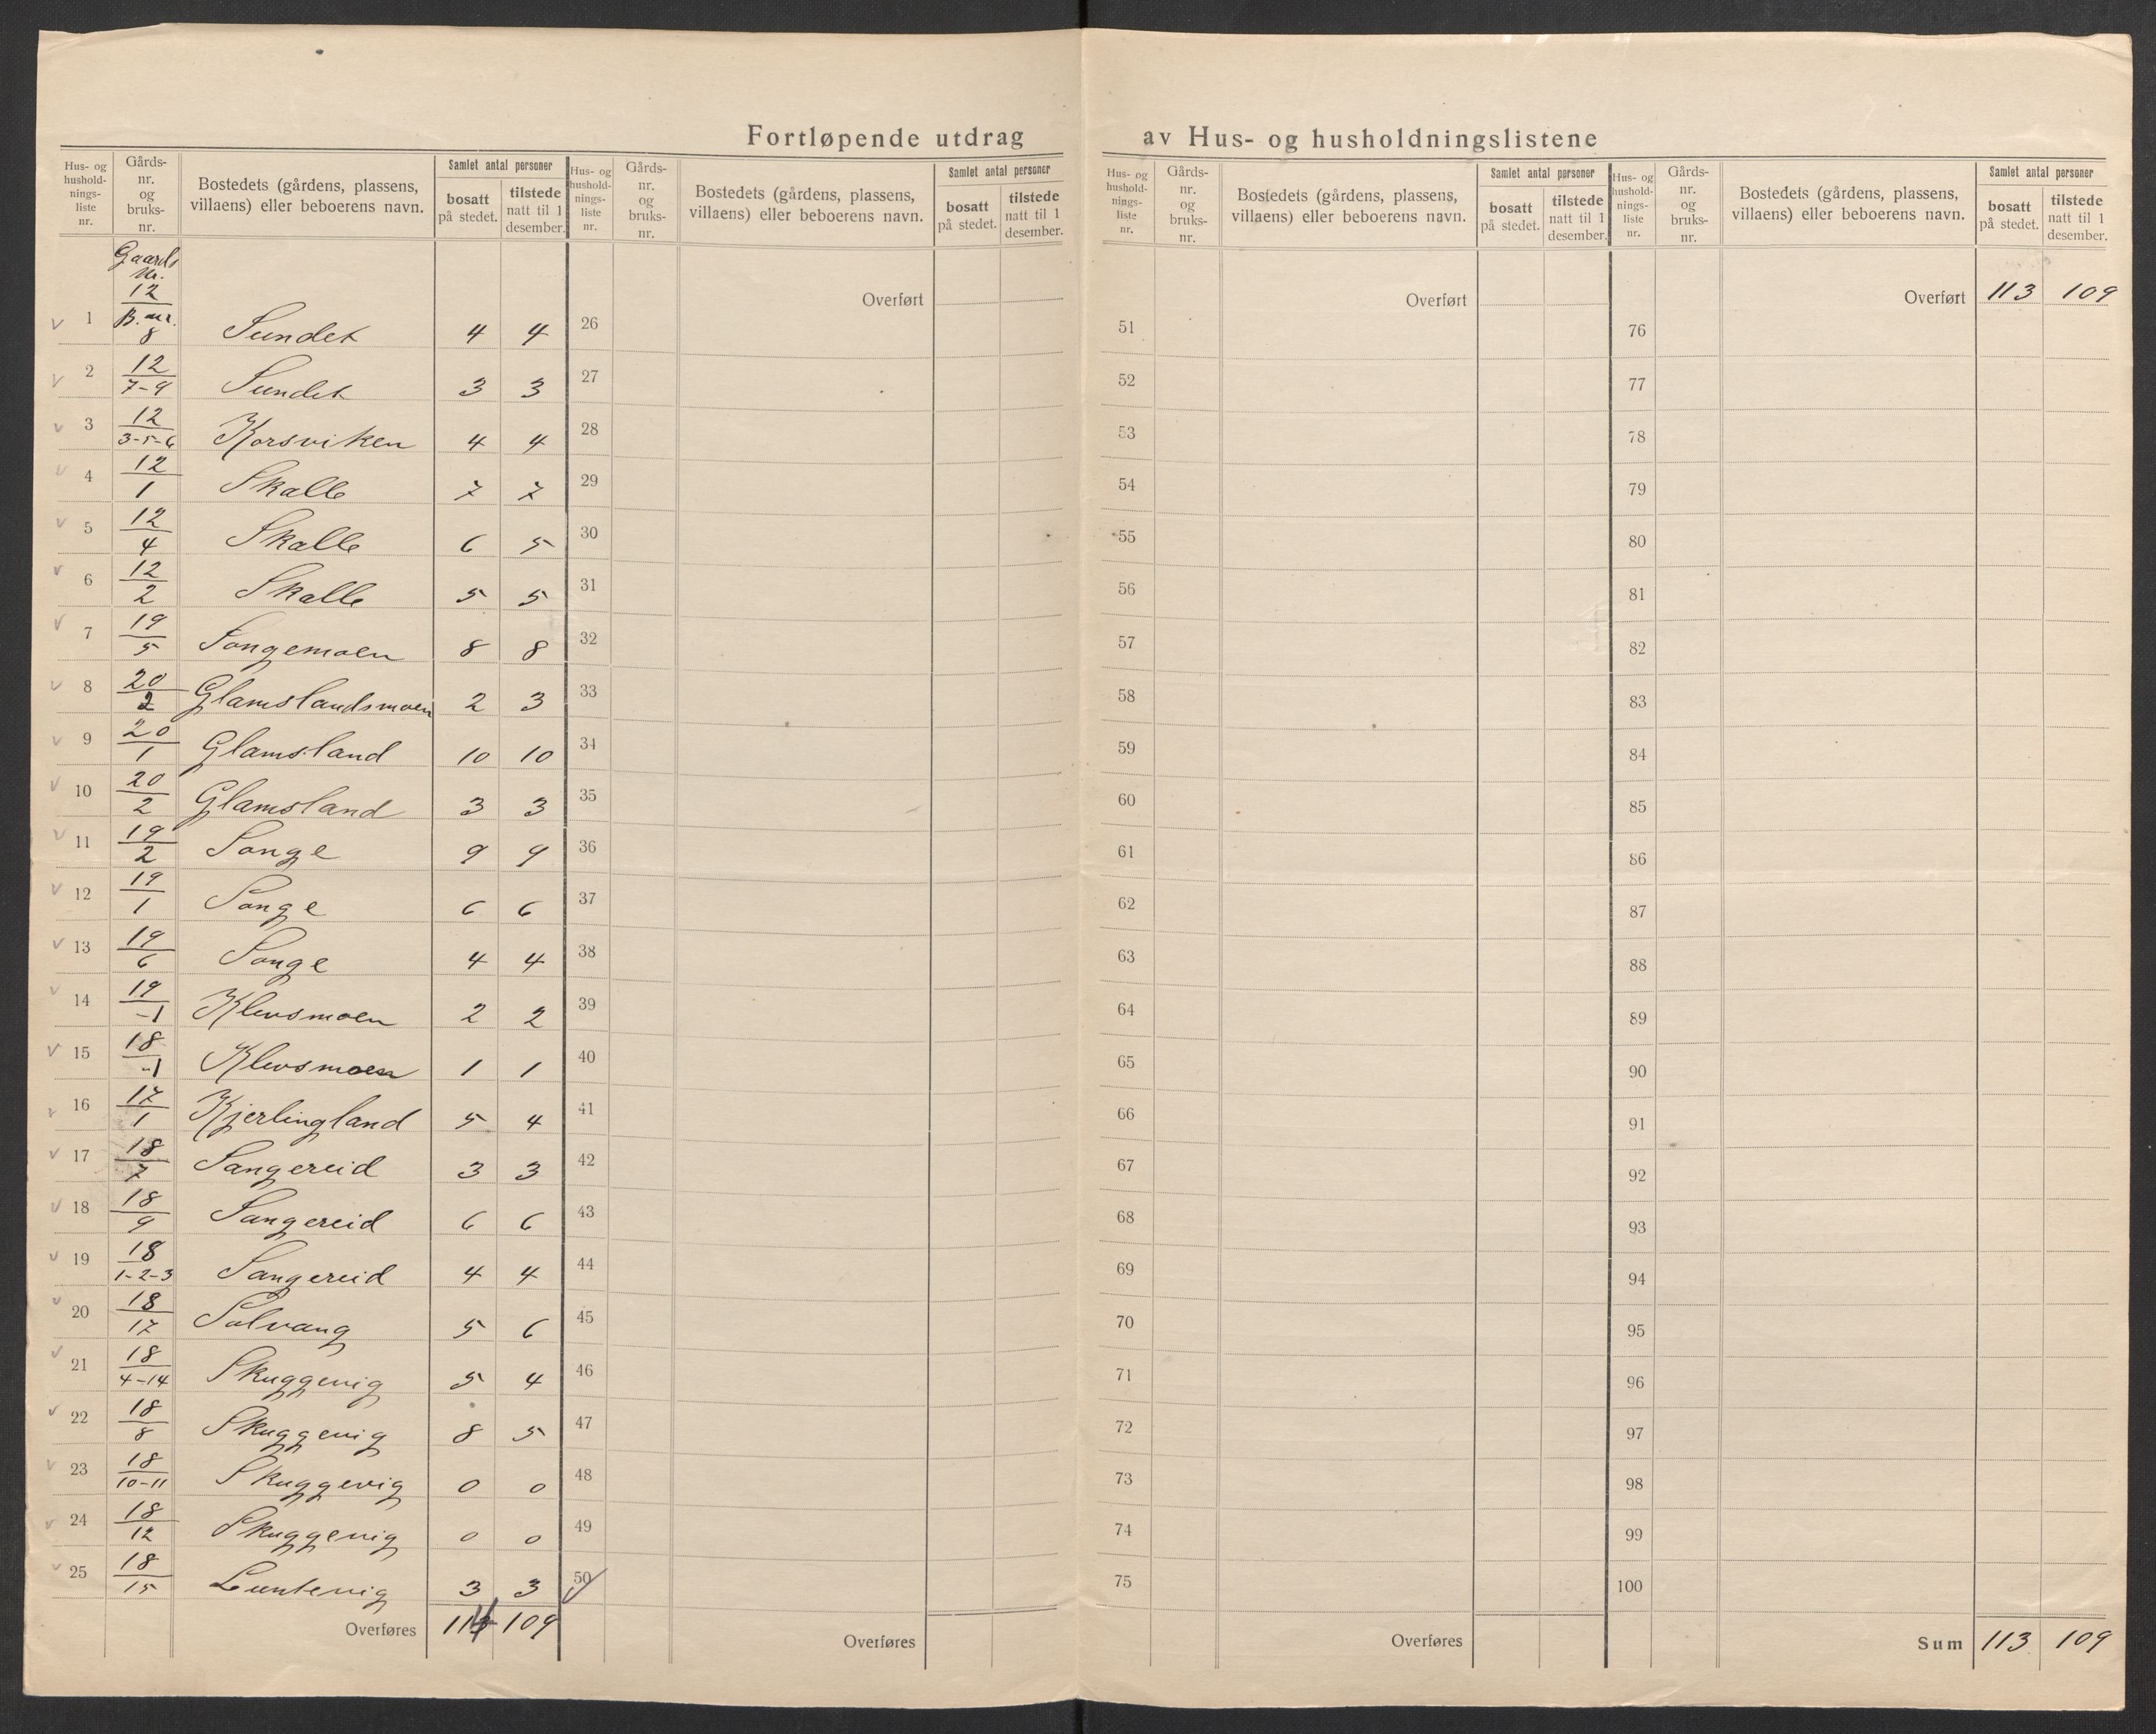 Fortløpende utdrag av Hus- og husholdningslistene
Hus- og hushold- nings- liste nr. | Gårds- nr. og bruks- nr. | Bostedets (gårdens, plassens, villaens) eller beboerens navn. | Samlet antal personer | bosatt på stedet. | tilstede natt til 1 desember.
Hus- og hushold- nings- liste nr. | Gårds- nr. og bruks- nr. | Bostedets (gårdens, plassens, villaens) eller beboerens navn. | Samlet antal personer | bosatt på stedet. | tilstede natt til 1 desember.
Hus- og hushold- nings- liste nr. | Gårds- nr. og bruks- nr. | Bostedets (gårdens, plassens, villaens) eller beboerens navn. | Samlet antal personer | bosatt på stedet. | tilstede natt til 1 desember.
Hus- og hushold- nings- liste nr. | Gårds- nr. og bruks- nr. | Bostedets (gårdens, plassens, villaens) eller beboerens navn. | Samlet antal personer | bosatt på stedet. | tilstede natt til 1 desember.
Gaards Nr.
1 12 B. nr. 8 Sundet 4 4
2 12/7-9 Sundet 3 3
3 12/3-5-6 Korsviken 4 4
4 12/1 Skalle 7 7
5 12/4 Skalle 6 5
6 12/2 Skalle 5 5
7 19/5 Songemoen 8 8
8 20/2 Glamslandsmoen 2 3
9 20/1 Glamsland 10 10
10 20/2 Glamsland 3 3
11 19/2 Songe 9 9
12 19/1 Songe 6 6
13 19/6 Songe 4 4
14 19/1 Klevsmoen 2 2
15 18/1 Klevsmoen 1 1
16 17/1 Kjerlingland 5 4
17 18/7 Sangereid 3 3
18 18/9 Sangereid 6 6
19 18/1-2-3 Sangereid 4 4
20 18/17 Solvang 5 6
21 18/4-14 Skuggevig 5 4
22 18/8 Skuggevig 8 5
23 18/10-11 Skuggevig 0 0
24 18/12 Skuggevig 0 0
25 18/15 Luntevig 3 3
Overføres 113 109
Overført
26
27
28
29
30
31
32
33
34
35
36
37
38
39
40
41
42
43
44
45
46
47
48
49
50
Overføres
Overført
51
52
53
54
55
56
57
58
59
60
61
62
63
64
65
66
67
68
69
70
71
72
73
74
75
Overføres
Overført 113 109
76
77
78
79
80
81
82
83
84
85
86
87
88
89
90
91
92
93
94
95
96
97
98
99
100
Sum 113 109